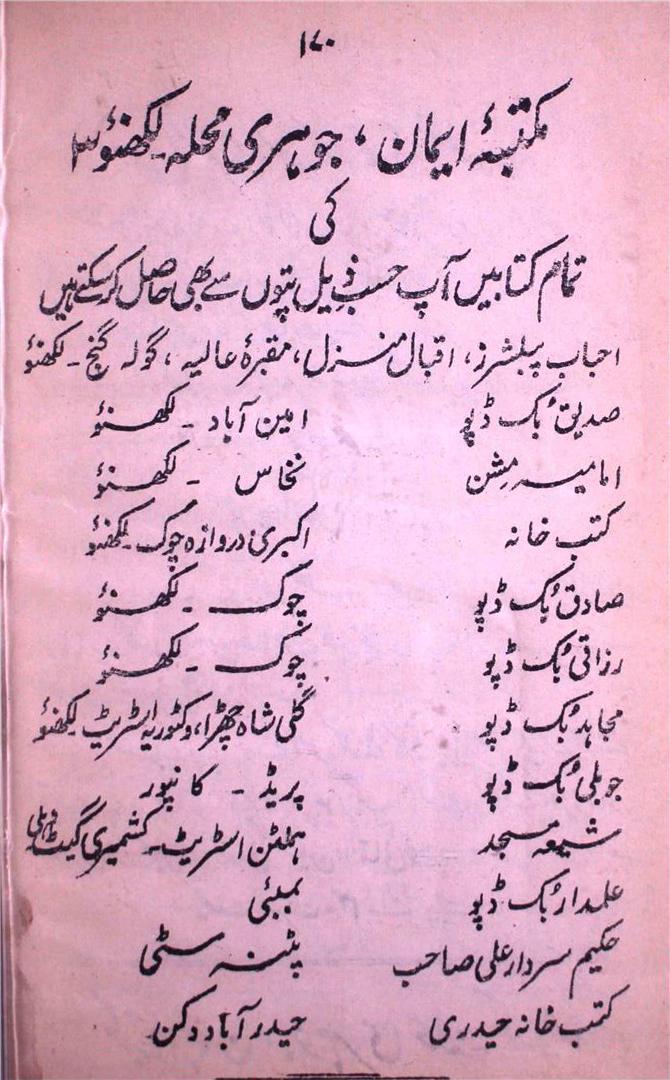 ۱۷۰
مکتبۂ ایمان، جوہری محلہ لکھنؤ ۳
کی
تمام کتابیں آپ حسب ذیل پتوں سے بھی حاصل کرسکتے ہیں
احباب پبلشرز، اقبال منزل، مقبرۂ عالیہ، گولہ گنج۔ لکھنؤ
صدیق بُک ڈپو امین آباد ۔ لکھنؤ
امامیہ مِشن نخاس ۔ لکھنؤ
کتب خانہ اکبری دروازہ چوک۔ لکھنؤ
صادق بُک ڈپو چوک ۔ لکھنؤ
رزاقی بُک ڈپو چوک ۔ لکھنؤ
مجاہد بُک ڈپو گلی شاہ چھڑا، وکٹوریہ اسٹریٹ لکھنؤ
جوبلی بُک ڈپو پریڈ ۔ کانپور
شیعہ مسجد ہملٹن اسٹریٹ۔ کشمیری گیٹ دہلی
علمدار بُک ڈپو بمبئی
حکیم سردار علی صاحب پٹنہ سٹی
کتب خانہ حیدری حیدرآباد دکن